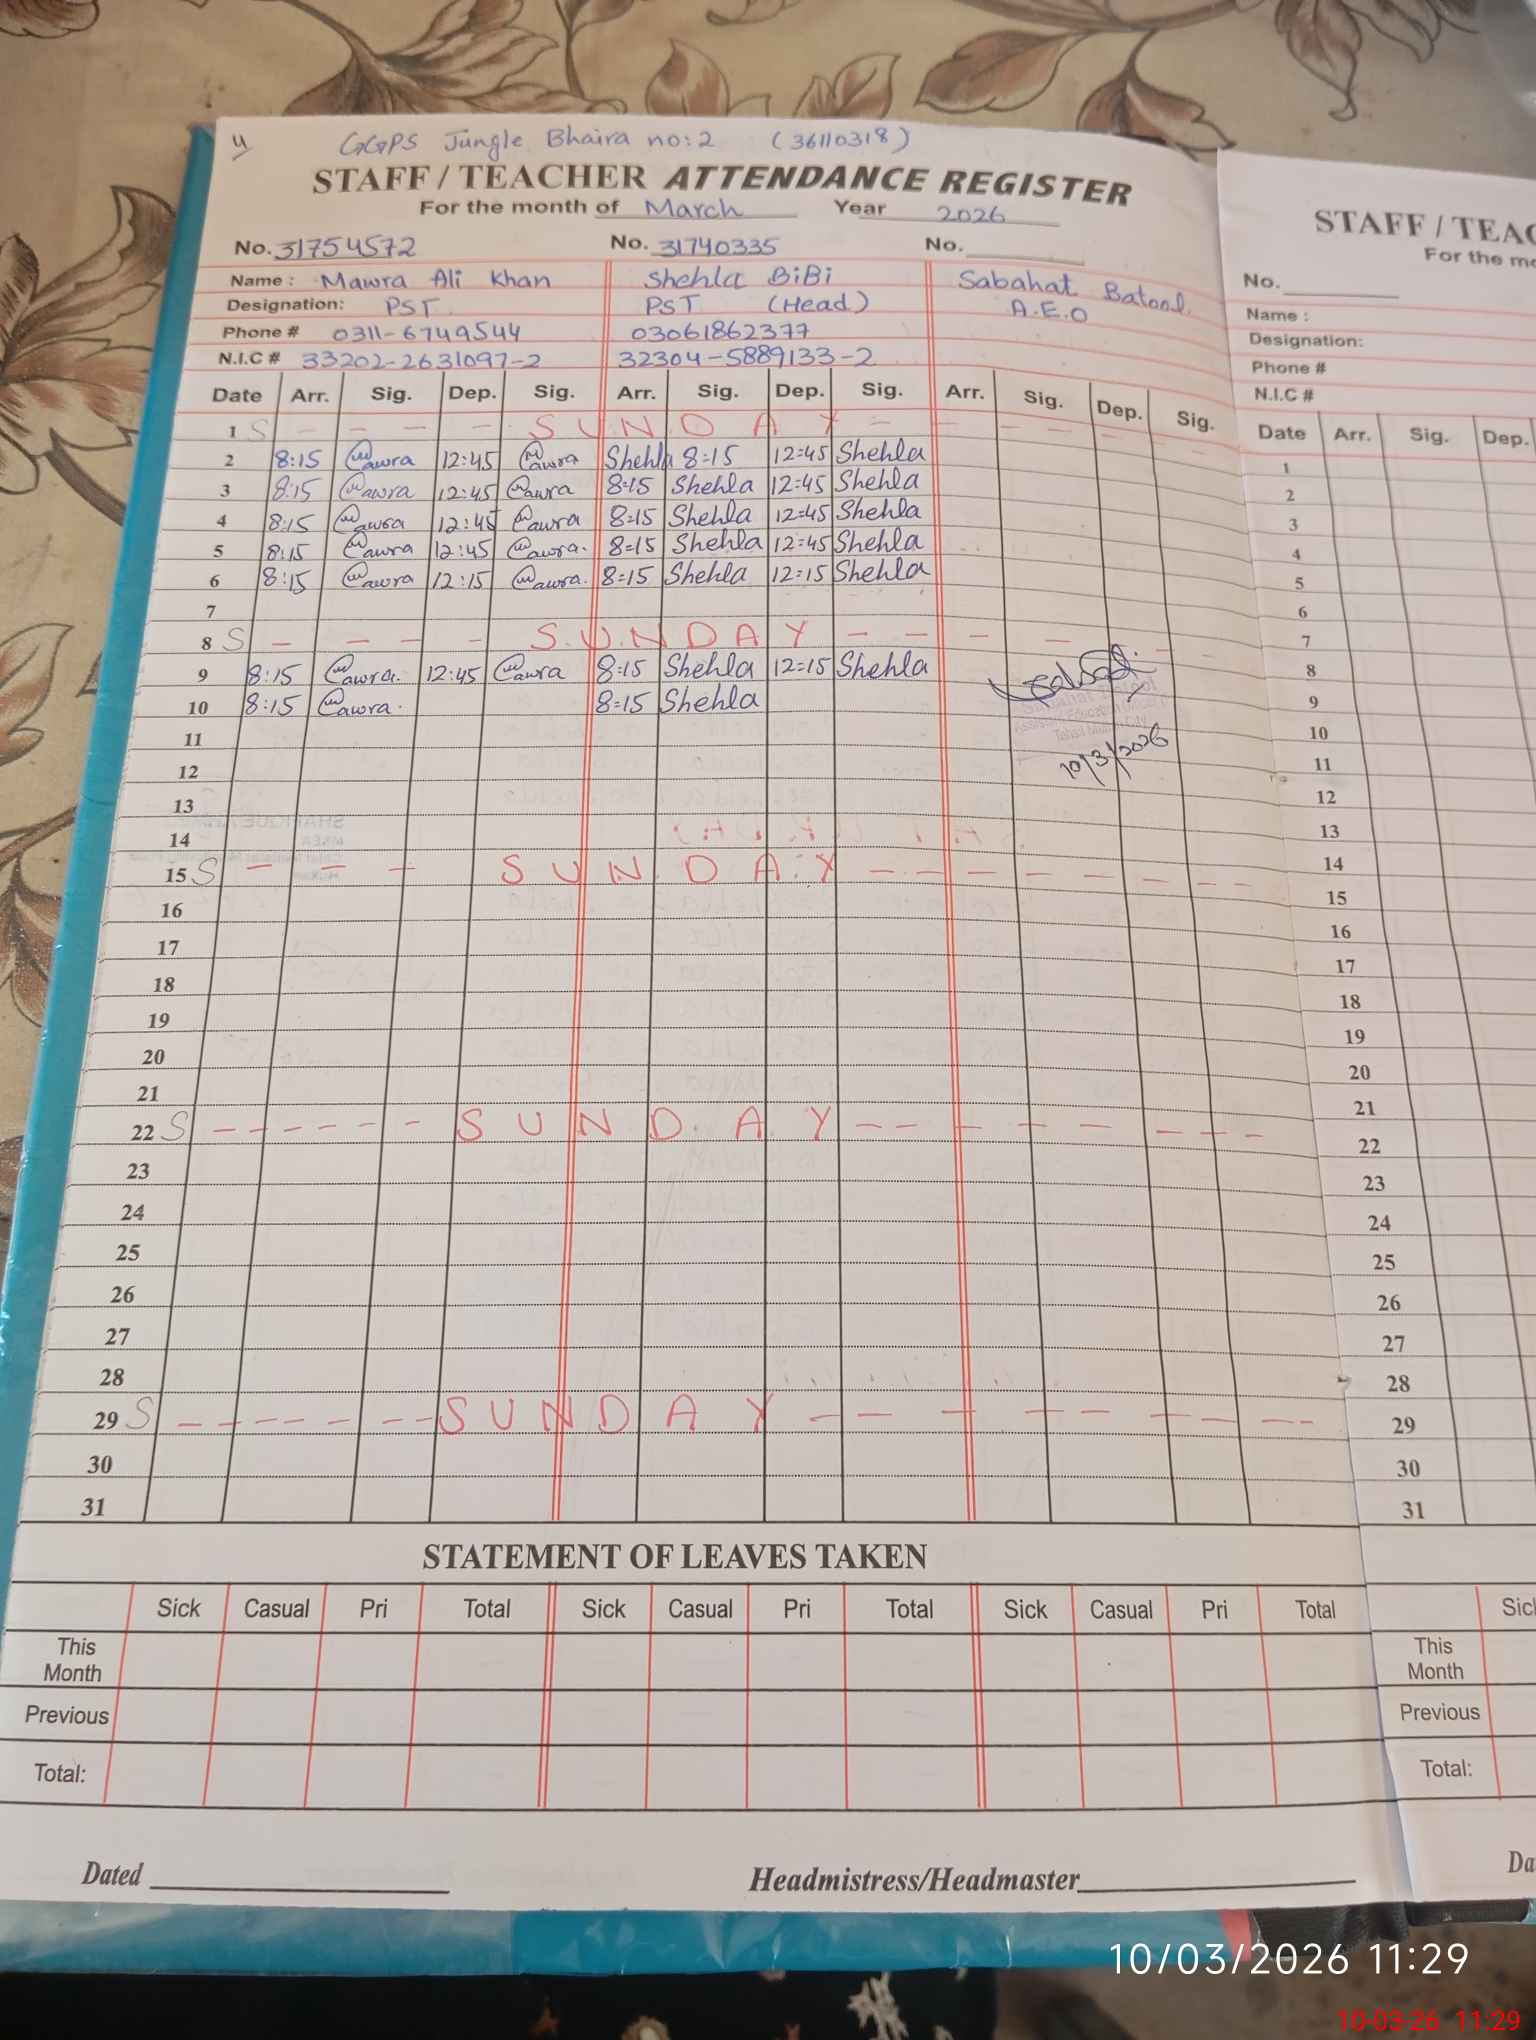 4
GGPS Jungle Bhaira no:2 (36110318)
STAFF / TEACHER ATTENDANCE REGISTER
For the month of March Year 2026
No. 31754572 No. 31740335 No.
Name: Mawra Ali Khan Shehla BiBi Sabahat Batool.
Designation: PST PST (Head) A.E.O
Phone # 0311-6749544 03061862377
N.I.C # 33202-2631097-2 32304-5889133-2
Date Arr. Sig. Dep. Sig. Arr. Sig. Dep. Sig. Arr. Sig. Dep. Sig.
1 S - - - - S U N D A Y - - - - - -
2 8:15 Mawra 12:45 Mawra Shehla 8=15 12=45 Shehla
3 8:15 Mawra 12:45 Mawra 8=15 Shehla 12=45 Shehla
4 8:15 Mawra 12:45 Mawra 8=15 Shehla 12=45 Shehla
5 8:15 Mawra 12:45 Mawra. 8=15 Shehla 12=45 Shehla
6 8:15 Mawra 12:15 Mawra. 8=15 Shehla 12=15 Shehla
7
8 S - - - - S.U.N D A Y - - - -
9 8:15 Mawra. 12:45 Mawra 8:15 Shehla 12=15 Shehla
10 8:15 Mawra. 8=15 Shehla
10/3/2026
11
12
13
14
15 S - - - S U N D A Y - - - - - - - -
16
17
18
19
20
21
22 S - - - - - - S U N D A Y - - - - - - - -
23
24
25
26
27
28
29 S - - - - - - - S U N D A Y - - - - - - - -
30
31
STATEMENT OF LEAVES TAKEN
Sick Casual Pri Total Sick Casual Pri Total Sick Casual Pri Total
This Month
Previous
Total:
Dated Headmistress/Headmaster
STAFF / TEAC
For the mo
No.
Name :
Designation:
Phone #
N.I.C #
Date Arr. Sig. Dep.
1
2
3
4
5
6
7
8
9
10
11
12
13
14
15
16
17
18
19
20
21
22
23
24
25
26
27
28
29
30
31
Sick
This Month
Previous
Total:
Da
10/03/2026 11:29
10-03-26 11:29